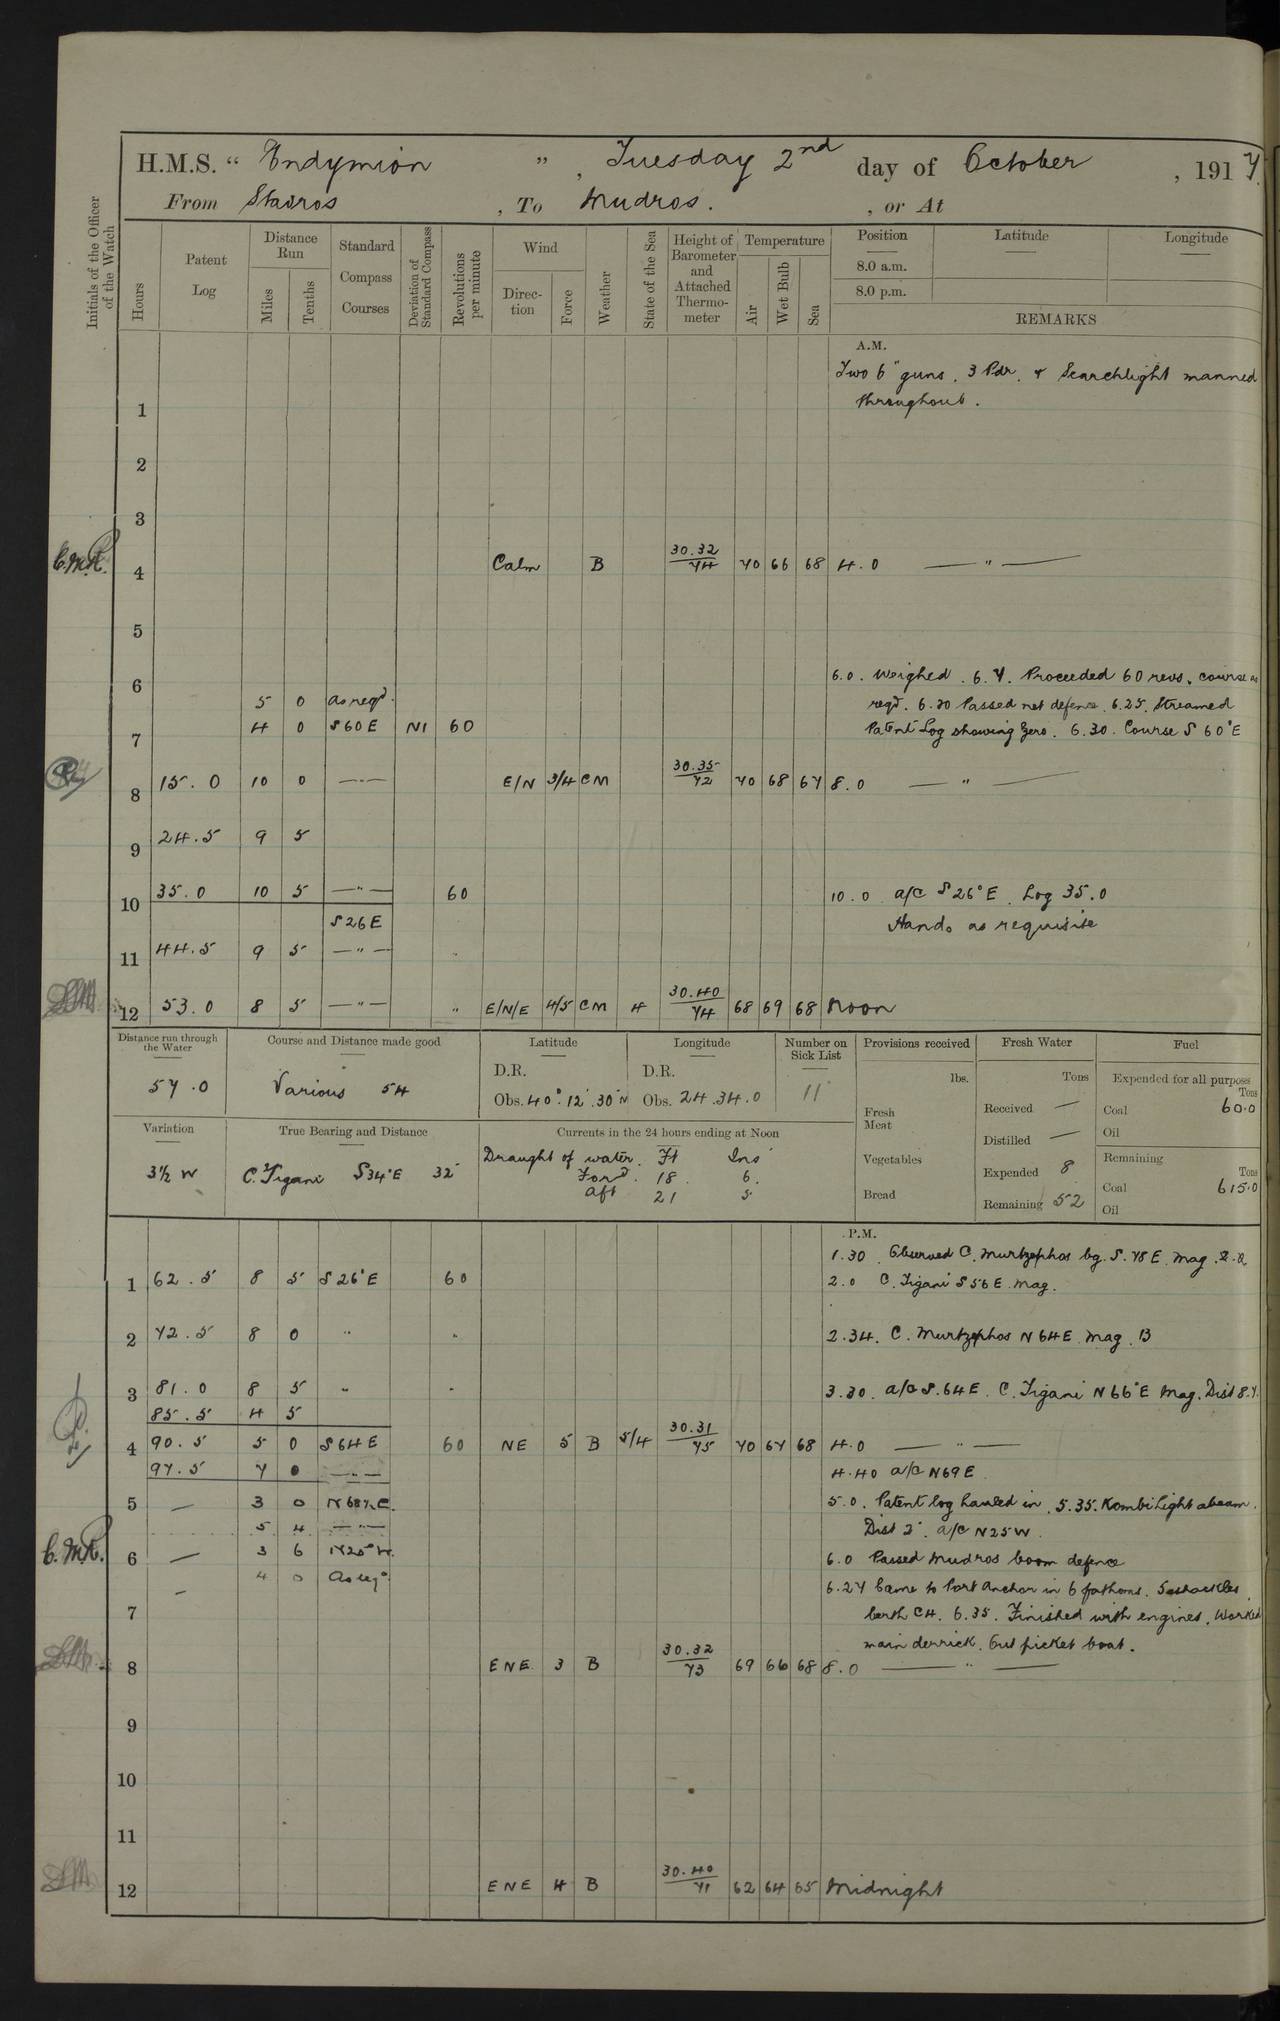 H.M.S. " Endymion ", Tuesday 2nd day of October, 1917.
From Stavros, To Mudros., or At
Initials of the Officer of the Watch
Hours
Patent Log
Distance Run
Miles
Tenths
Standard Compass Courses
Deviation of Standard Compass
Revolutions per minute
Wind
Direction
Force
Weather
State of the Sea
Height of Barometer and Attached Thermometer
Temperature
Air
Wet Bulb
Sea
Position
Latitude
Longitude
8.0 a.m.
8.0 p.m.
REMARKS
A.M.
Two 6" guns. 3 Pdr. & Searchlight manned
throughout.
1
2
3
C.M.R. 4 Calm B 30.32/74 70 66 68 4.0 — " —
5
6 6.0. Weighed. 6.7. Proceeded 60 revs. course as
5 0 as reqd. reqd. 6.20 Passed net defence. 6.25. Streamed
7 4 0 S60E N1 60 Patent Log showing Zero. 6.30. Course S 60°E
8 15.0 10 0 —"— E/N 3/4 CM 30.35/72 70 68 67 8.0 — " —
9 24.5 9 5
10 35.0 10 5 —"— 60 10.0 a/c S26°E. Log 35.0
S26E Hands as requisite
11 44.5 9 5 —"— "
12 53.0 8 5 —"— " E/N/E 4/5 CM 4 30.40/74 68 69 68 Noon
Distance run through the Water
57.0
Course and Distance made good
Various 54
Latitude
D.R.
Obs. 40°.12'.30"N
Longitude
D.R.
Obs. 24.34.0
Number on Sick List
11
Provisions received
lbs.
Fresh Meat
Vegetables
Bread
Fresh Water
Tons
Received —
Distilled —
Expended 8
Remaining 52
Fuel
Expended for all purposes
Tons
Coal 60.0
Oil
Remaining
Tons
Coal 615.0
Oil
Variation
3½ W
True Bearing and Distance
C. Tigani S34°E 32'
Currents in the 24 hours ending at Noon
Draught of water. Ft Ins
Ford. 18. 6.
Aft 21 5
P.M.
1.30. Observed C. Murtzephos bg. S.78E. Mag.
1 62.5 8 5 S26°E 60 2.0 C. Tigani S56E. Mag.
2 72.5 8 0 " " 2.34. C. Murtzephos N64E. Mag. B
3 81.0 8 5 " " 3.30. a/c S.64E. C. Tigani N66°E Mag. Dist 8.7.
85.5 4 5
4 90.5 5 0 S64E 60 NE 5 B 5/4 30.31/75 70 67 68 4.0 — " —
97.5 7 0 —"— 4.40 a/c N69E
5 — 3 0 5.0. Patent log hauled in. 5.35. Kombi Light abeam.
5 4 —"— Dist 2'. a/c N25W.
C.M.R. 6 — 3 6 N25°W. 6.0 Passed Mudros boom defence
— 4 0 As reqd. 6.27 Came to Port Anchor in 6 fathoms. 5 shackles.
7 berth C4. 6.35. Finished with engines. Worked
main derrick. Out picket boat.
8 ENE 3 B 30.32/73 69 66 68 8.0 — " —
9
10
11
12 ENE 4 B 30.40/71 62 64 65 Midnight